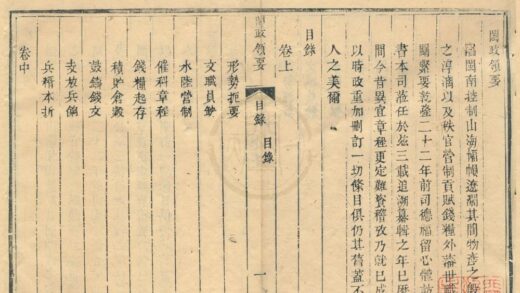 閩政領要
竊閩南控制山海幅幀遼濶其間物產之殷
之淳漓以及秩官營制貢賦錢糧外海世職
關緊要乾隆二十二年前司德福留心體訪
書本司蒞任於茲三載追溯纂輯之年已歷
間今昔異宜章程更定難資稽攷乃就已成
以時政重加刪訂一切條目俱仍其舊蓋不
人之美爾
目錄
卷上
閩政領要 目錄 目錄 一
形勢扼要
文職員缺
水陸營制
催科章程
錢糧起存
積貯倉穀
鼓鑄錢文
支放兵餉
兵糈本折
卷中